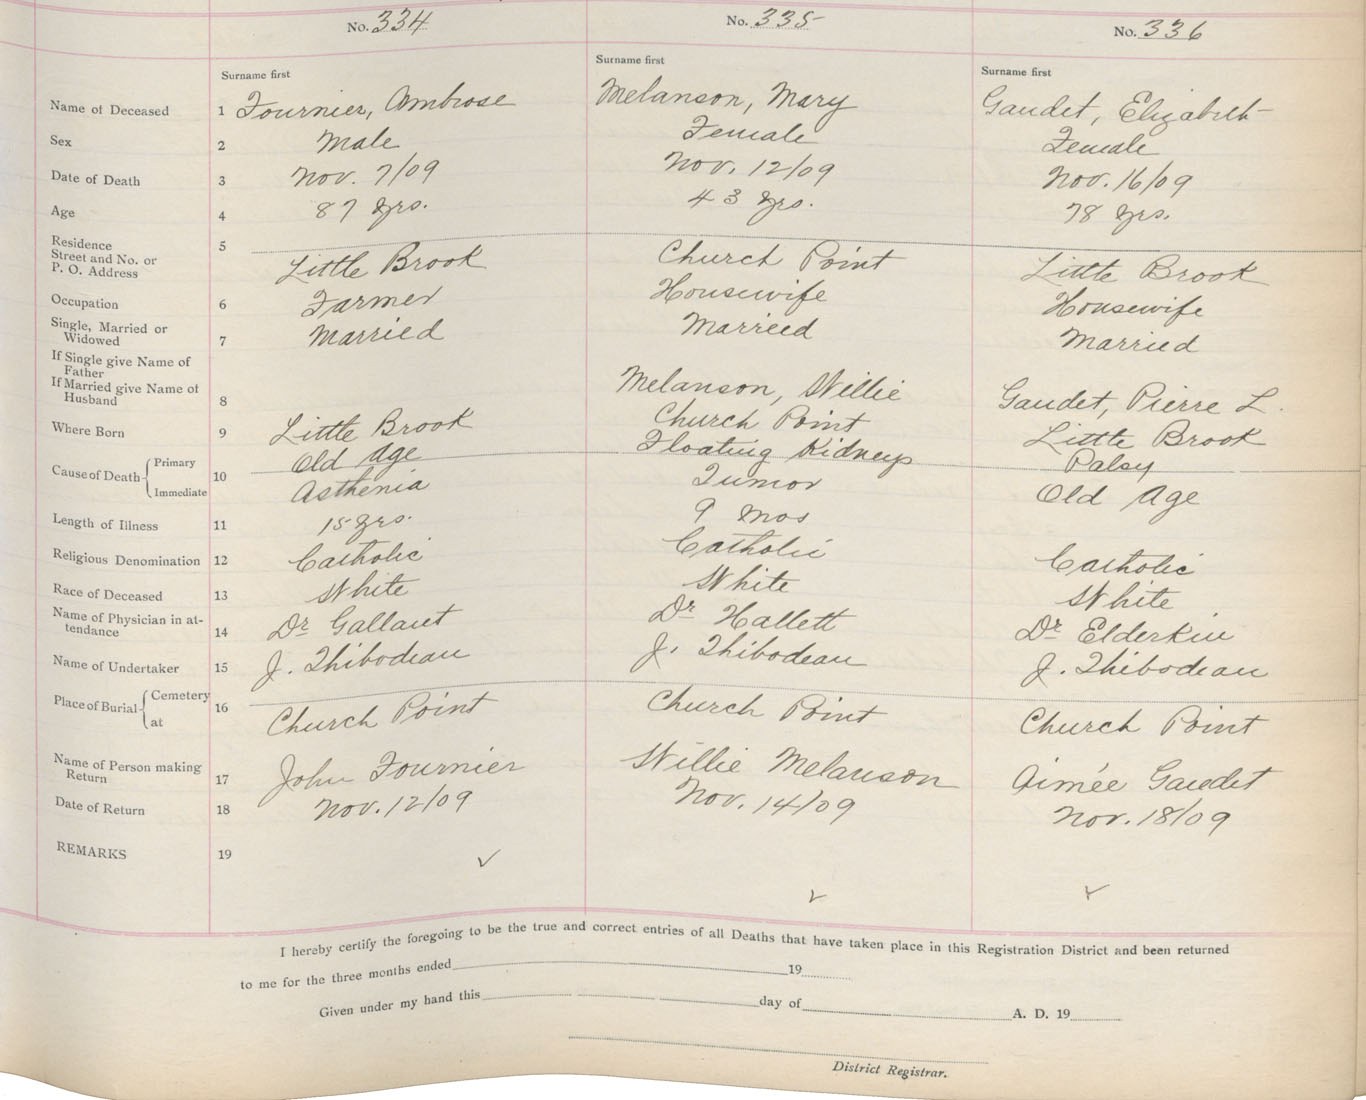 No. 334 No. 335 No. 336
Surname first Surname first Surname first
Name of Deceased 1 Fournier, Ambrose Melanson, Mary Gaudet, Elizabeth
Sex 2 Male Female Female
Date of Death 3 Nov. 7/09 Nov. 12/09 Nov. 16/09
Age 4 87 yrs. 43 yrs. 78 yrs.
Residence 5
Street and No. or
P. O. Address Little Brook Church Point Little Brook
Occupation 6 Farmer Housewife Housewife
Single, Married or
Widowed 7 Married Married Married
If Single give Name of
Father
If Married give Name of
Husband 8 Melanson, Willie Gaudet, Pierre L.
Where Born 9 Little Brook Church Point Little Brook
Cause of Death 10 Primary Old Age Floating Kidneys Palsy
Immediate Asthenia Tumor Old Age
Length of Illness 11 15 yrs. 9 mos
Religious Denomination 12 Catholic Catholic Catholic
Race of Deceased 13 White White White
Name of Physician in at-
tendance 14 Dr Gallant Dr Hallett Dr Elderkin
Name of Undertaker 15 J. Thibodeau J. Thibodeau J. Thibodeau
Place of Burial 16 Cemetery
at Church Point Church Point Church Point
Name of Person making
Return 17 John Fournier Willie Melanson Aimée Gaudet
Date of Return 18 Nov. 12/09 Nov. 14/09 Nov. 18/09
REMARKS 19
I hereby certify the foregoing to be the true and correct entries of all Deaths that have taken place in this Registration District and been returned
to me for the three months ended 19
Given under my hand this day of A. D. 19
District Registrar.